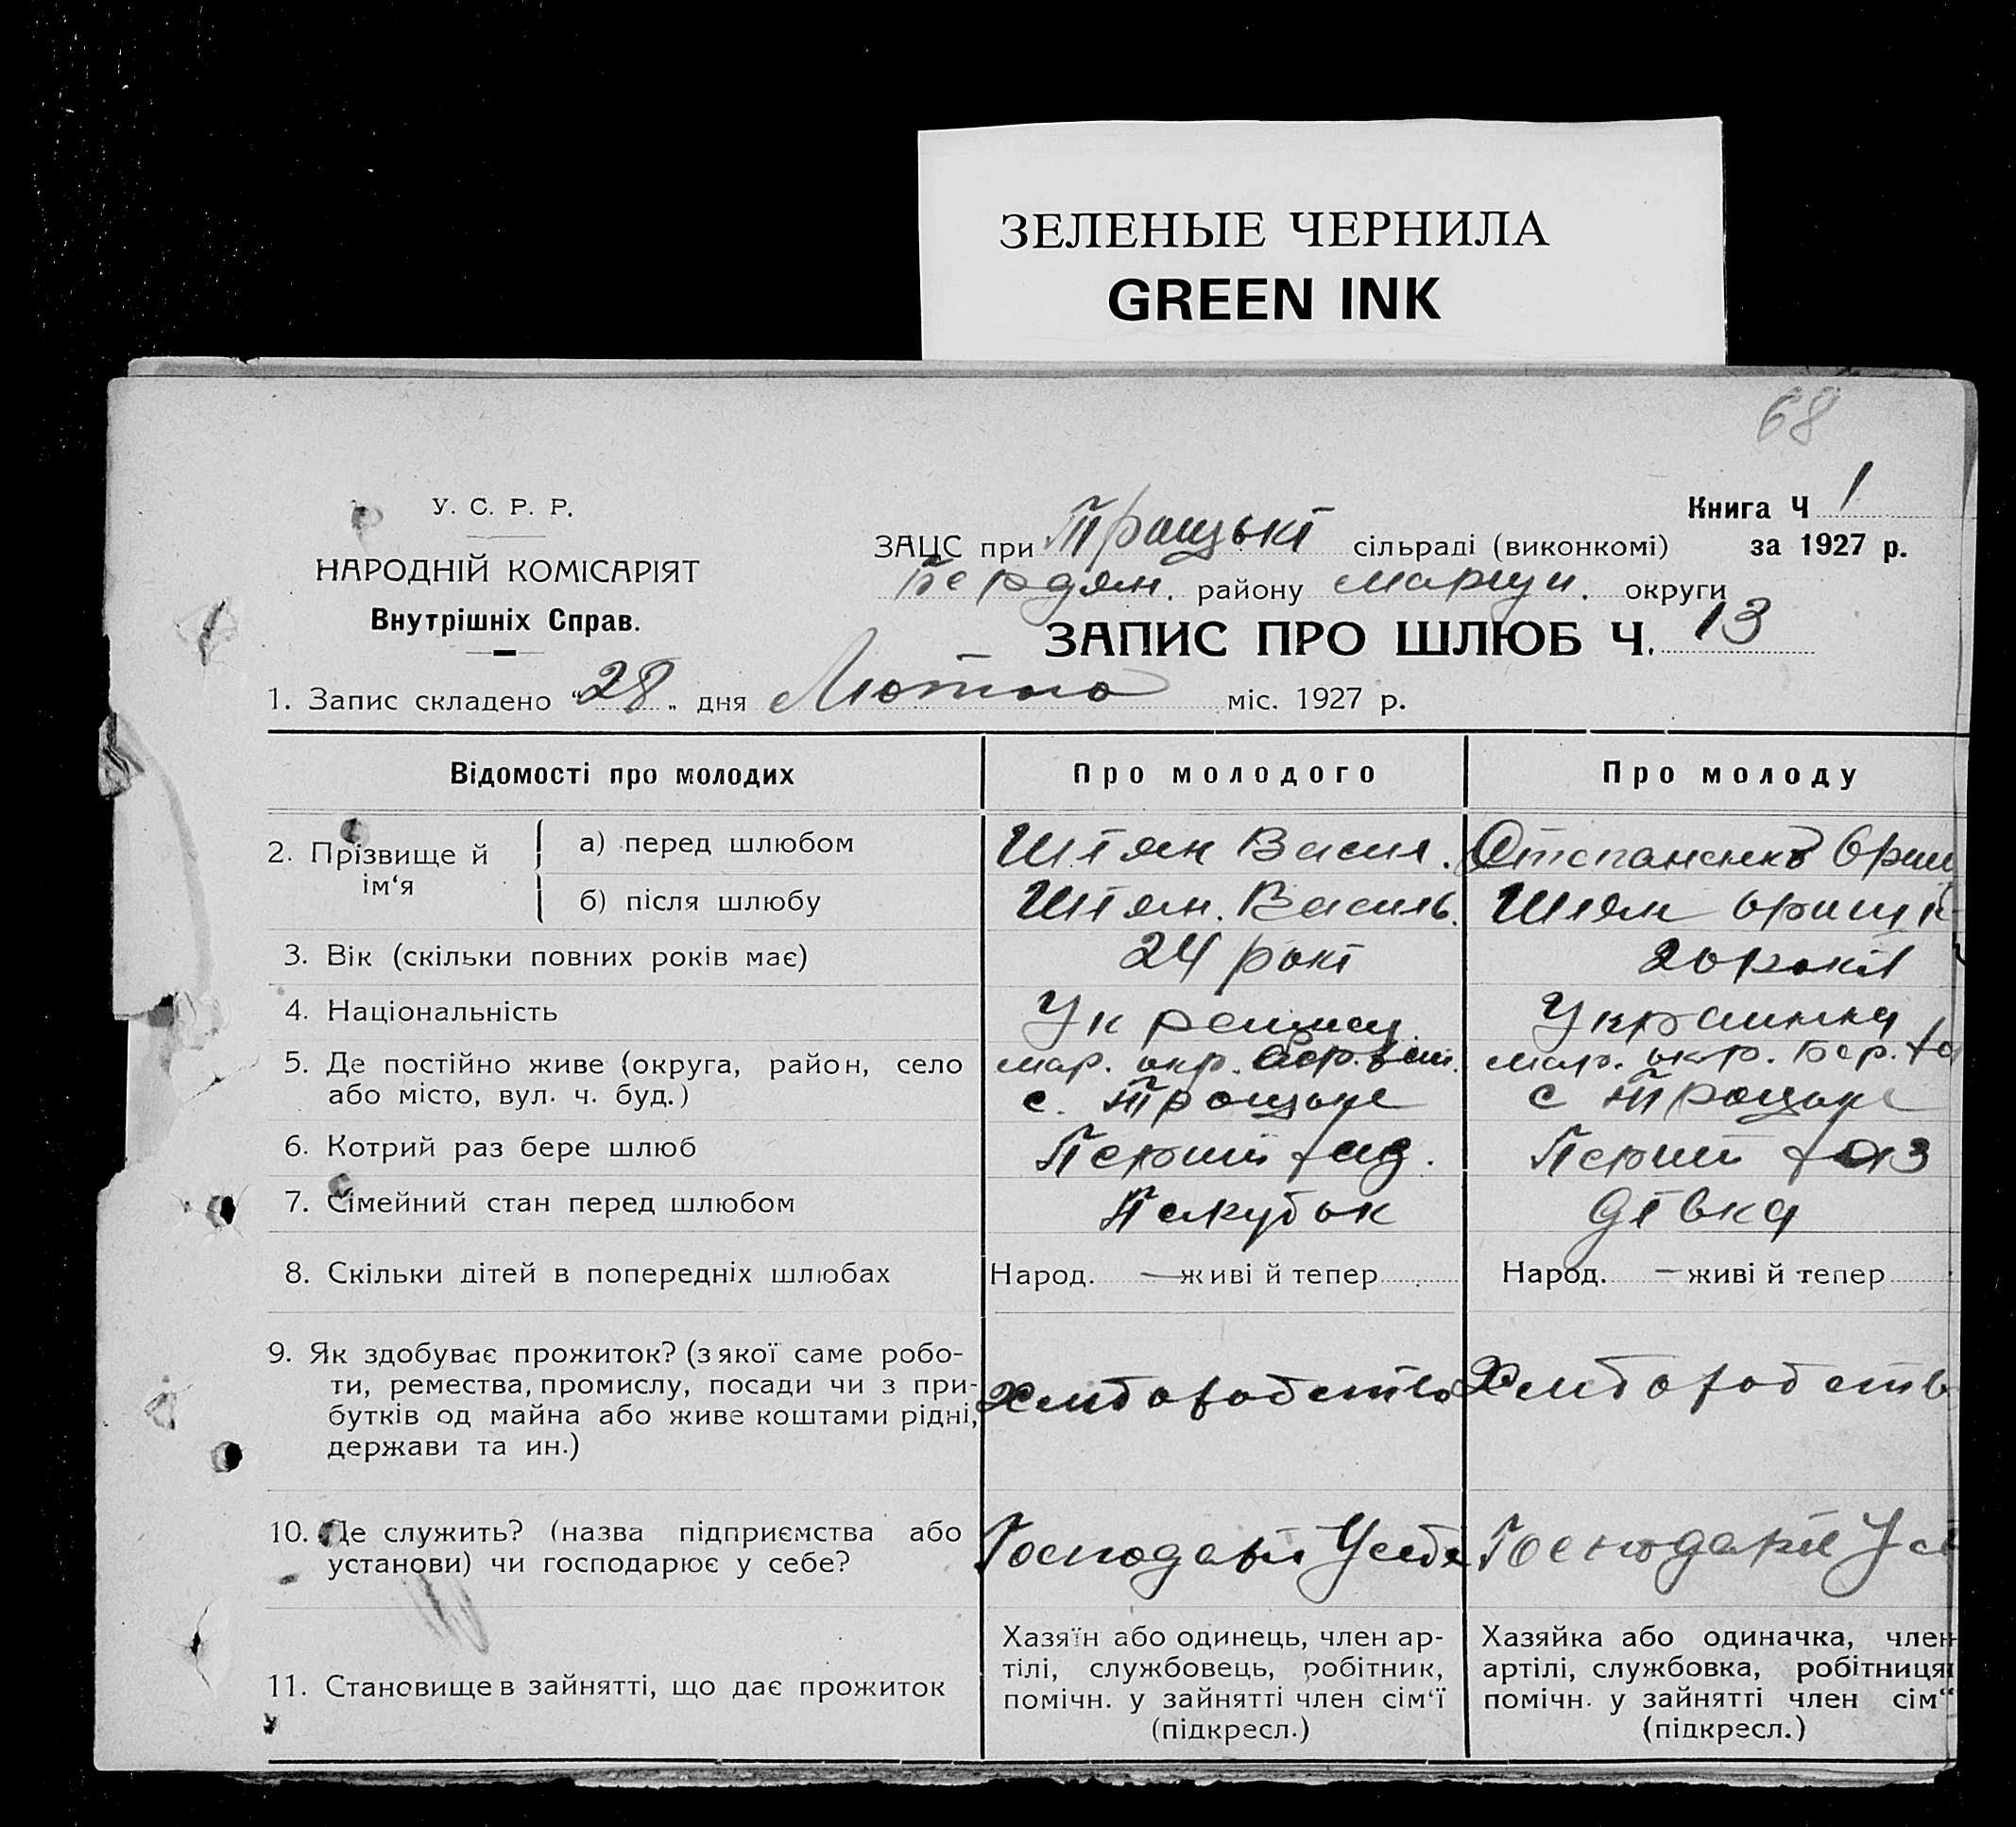 ЗЕЛЕНЫЕ ЧЕРНИЛА
GREEN INK
68
У. С. Р. Р.
НАРОДНІЙ КОМІСАРІЯТ
Внутрішніх Справ.
Книга Ч 1
за 1927 р.
ЗАЦС при Троцькі сільраді (виконкомі)
Бердян. району Маріуп. округи
ЗАПИС ПРО ШЛЮБ Ч. 13
1. Запис складено „28„ дня Лютого міс. 1927 р.
Відомості про молодих Про молодого Про молоду
2. Прізвище й ім‘я
а) перед шлюбом Василь. Орин
б) після шлюбу Василь.
3. Вік (скільки повних років має) 24 рокі 20 рокіі
4. Національність Украинец Украинка
5. Де постійно живе (округа, район, село
або місто, вул. ч. буд.)
мар. окр. мар. окр. Бер. ра
с. Троцьке с Троцьке
6. Котрий раз бере шлюб Перший раз. Перший раз
7. Сімейний стан перед шлюбом Парубок дівка
8. Скільки дітей в попередніх шлюбах Народ. — живі й тепер Народ. — живі й тепер
9. Як здобуває прожиток? (з якої саме робо-
ти, ремества, промислу, посади чи з при-
бутків од майна або живе коштами рідні,
держави та ин.)
Хлиборобство Хлиборобств
10. Де служить? (назва підприємства або
установи) чи господарює у себе?
Господаріє У себе Господаріє У се
11. Становище в зайнятті, що дає прожиток
Хазяїн або одинець, член ар-
тілі, службовець, робітник,
помічн. у зайнятті член сім‘ї
(підкресл.)
Хазяйка або одиначка, член
артілі, службовка, робітниця
помічн. у зайнятті член сім‘
(підкресл.)